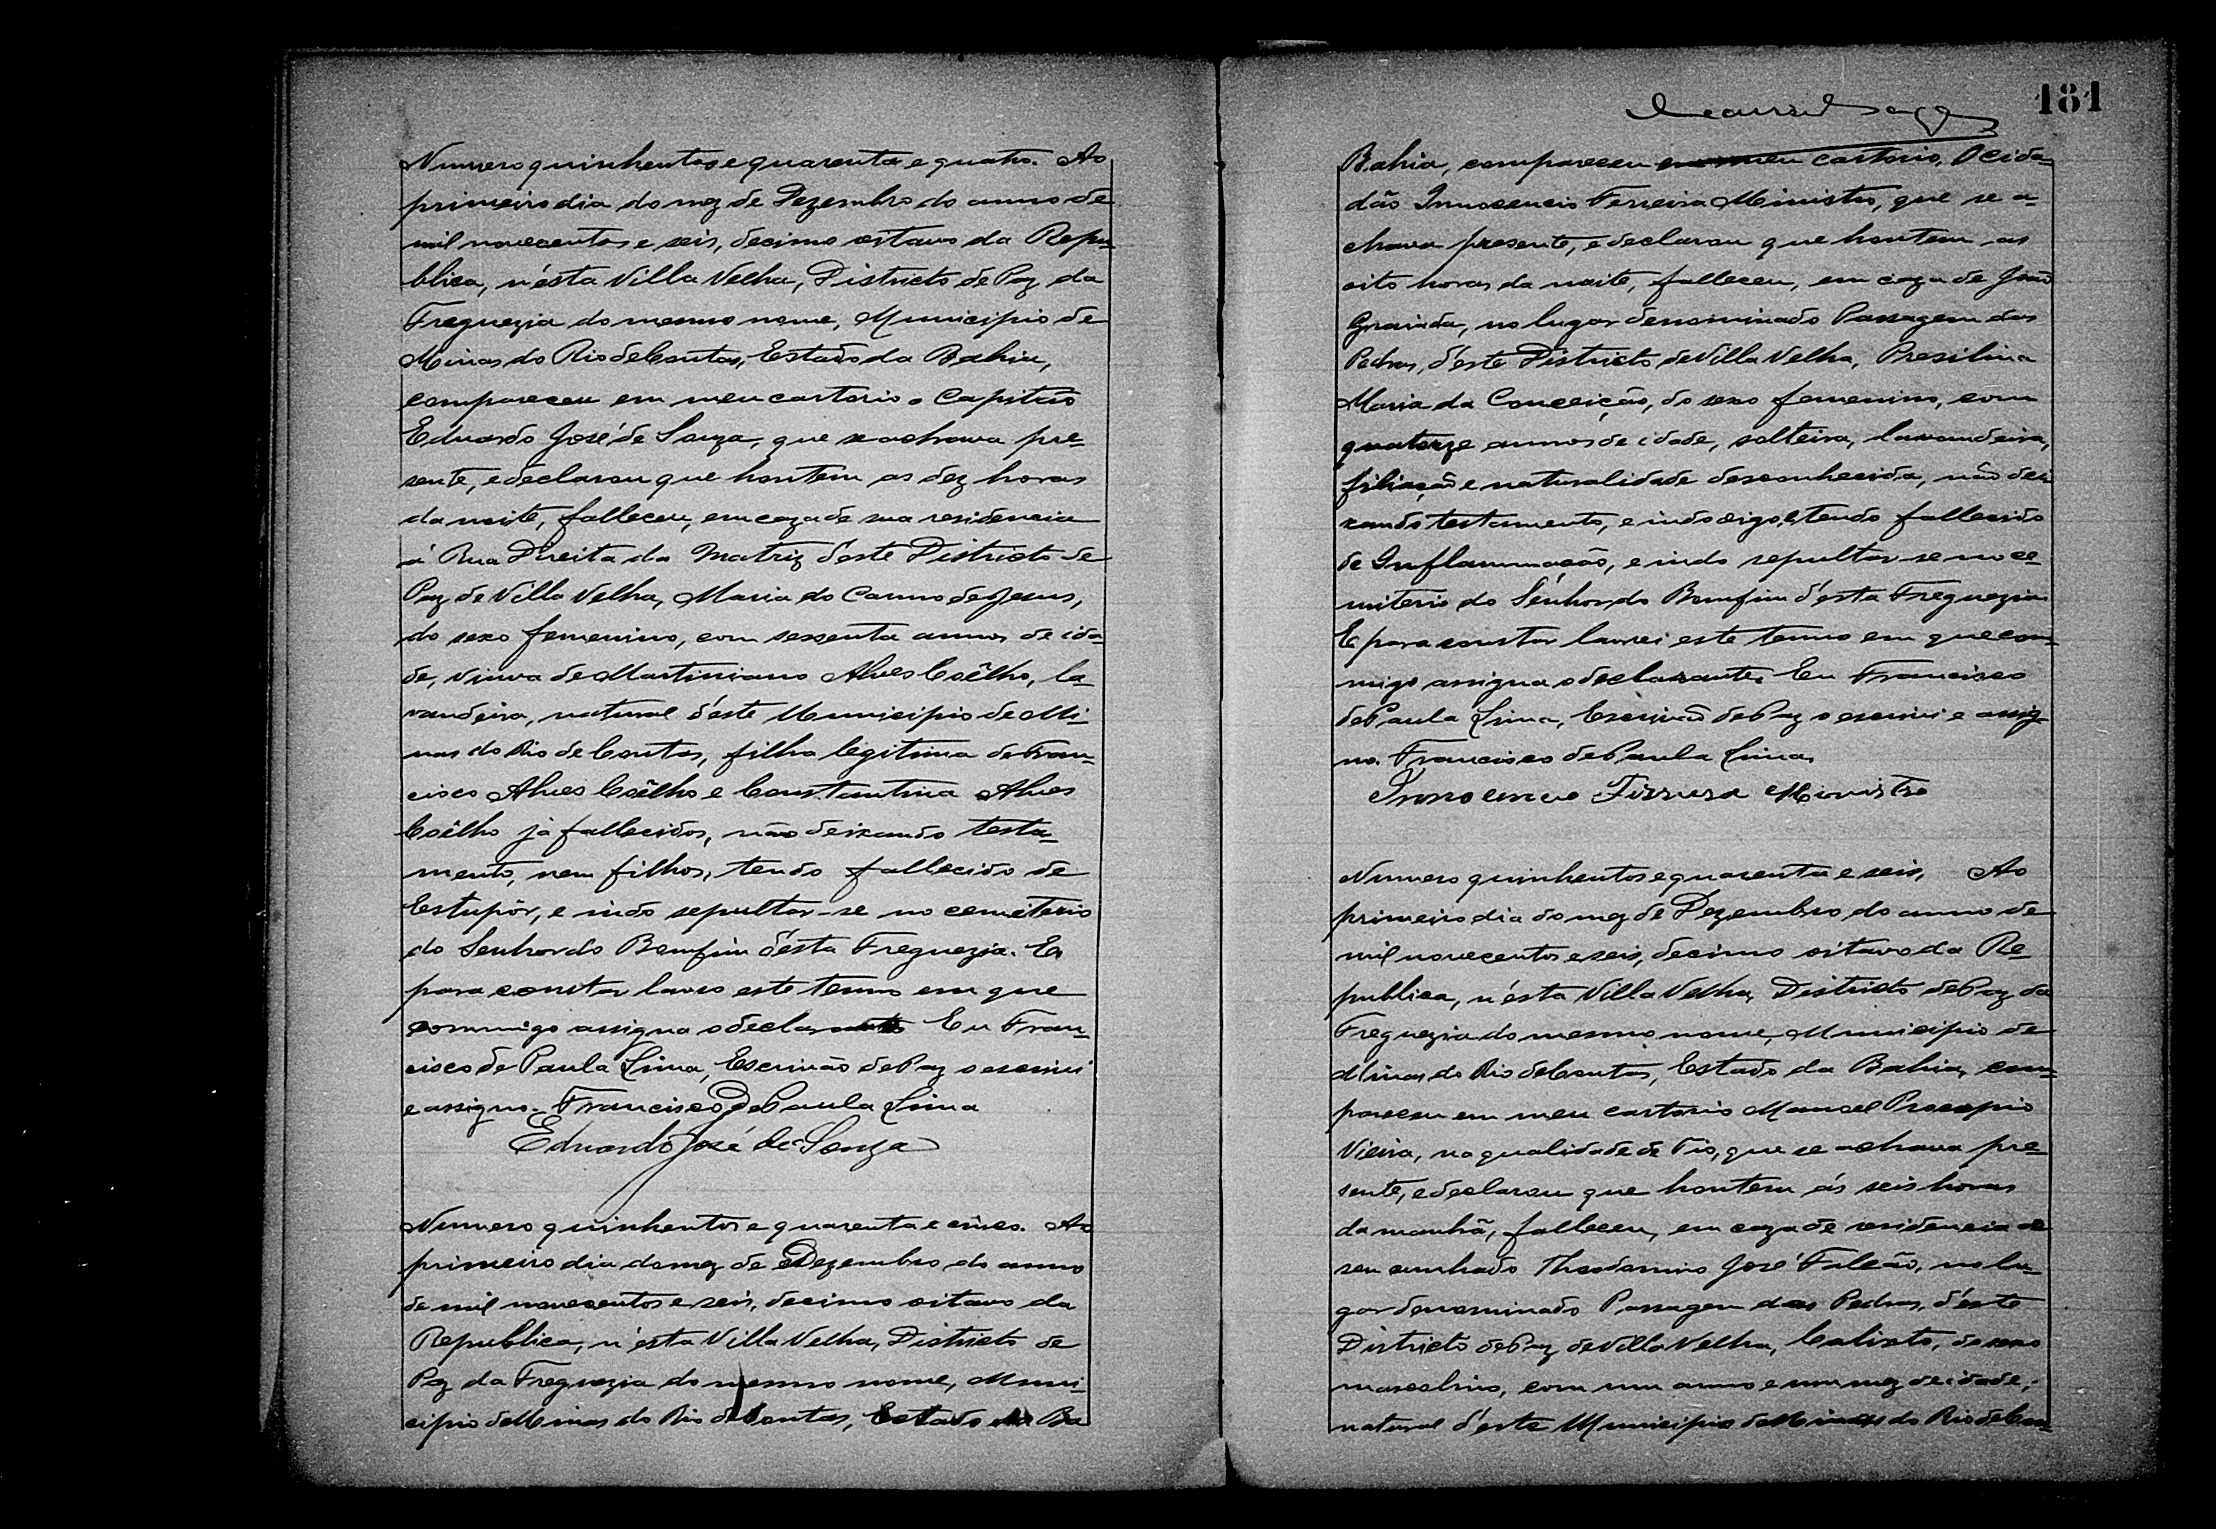 Numero quinhentos e quarenta e quatro. Ao
primeiro dia do mez de Dezembro do anno de
mil novecentos e seis, decimo oitavo da Repu-
blica, n'ésta Villa Velha, Districto de Paz da
Freguezia do mesmo nome, Municipio de
Minas do Rio de Contas, Estado da Bahia,
compareceu em meu cartorio o Capitão
Eduardo José de Souza, que se achava pre-
sente, e declarou que hontem as dez horas
da noite, falleceu, em caza de sua residencia
á Rua Direita da Matriz d'este Districto de
Paz de Villa Velha, Maria do Carmo de Jesus,
do sexo femenino, com sessenta annos de ida-
de, viuva de Martiniano Alves Coêlho, la-
vandeira, natural d'este Municipio de Mi-
nas do Rio de Contas, filha legitima de Fran-
cisco Alves Coêlho e Constantina Alves
Coêlho já fallecidos, não deixando testa-
mento, nem filhos, tendo fallecido de
Estupôr, e indo sepultar-se no cemiterio
do Senhor do Bomfim d'ésta Freguezia. E
para constar lavro este termo em que
commigo assigna o declarante Eu Fran-
cisco de Paula Lima, Escrivão de Paz o escrivi
e assigno. Francisco de Paula Lima
Eduardo José de Souza
Numero quinhentos e quarenta e cinco. Ao
primeiro dia do mez de Dezembro do anno
de mil novecentos e seis, decimo oitavo da
Republica, n'ésta Villa Velha, Districto de
Paz da Freguezia do mesmo nome, Muni-
cipio de Minas do Rio de Contas, Estado da Ba
181
Bahia, compareceu em meu cartorio, O cida-
dão Innocencio Ferreira Ministro, que se a-
chava presente, e declarou que hontem as
oito horas da noite, falleceu, em caza de João
, no lugar denominado Passagem das
Pedras, d'éste Districto de Villa Velha, Presilina
Maria da Conceição, do sexo femenino, com
quatorze annos de idade, solteira, lavandeira,
filiação e naturalidade desconhecida, não dei
xando testamento, e indo digo, e tendo fallecido
de Inflammação, e indo sepultar-se no ce-
miterio do Senhor do Bomfim d'ésta Freguezia
E para constar lavrei este termo em que com-
migo assigna o declarante. Eu Francisco
de Paula Lima, Escrivão de Paz o escrivi e assig-
no. Francisco de Paula Lima.
Innocencio Ferreira Ministro
Numero quinhentos e quarenta e seis. Ao
primeiro dia do mez de Dezembro do anno de
mil novecentos e seis, decimo oitavo da Re-
publica, n'ésta Villa Velha, Districto de Paz da
Freguezia do mesmo nome, Municipio de
Minas do Rio de Contas, Estado da Bahia, com-
pareceu em meu cartorio Manoel Procopio
Vieira, na qualidade de Tio, que se achava pre-
sente, e declarou que hontem ás seis horas
da manhã, falleceu, em caza de residencia de
seu cunhado José Falcão, no lu-
gar denominado Passagem das Pedras, d'éste
Districto de Paz de Villa Velha, Calixto, de sexo
masculino, com um anno e um mez de idade,
natural d'este Municipio de Minas do Rio de Con-